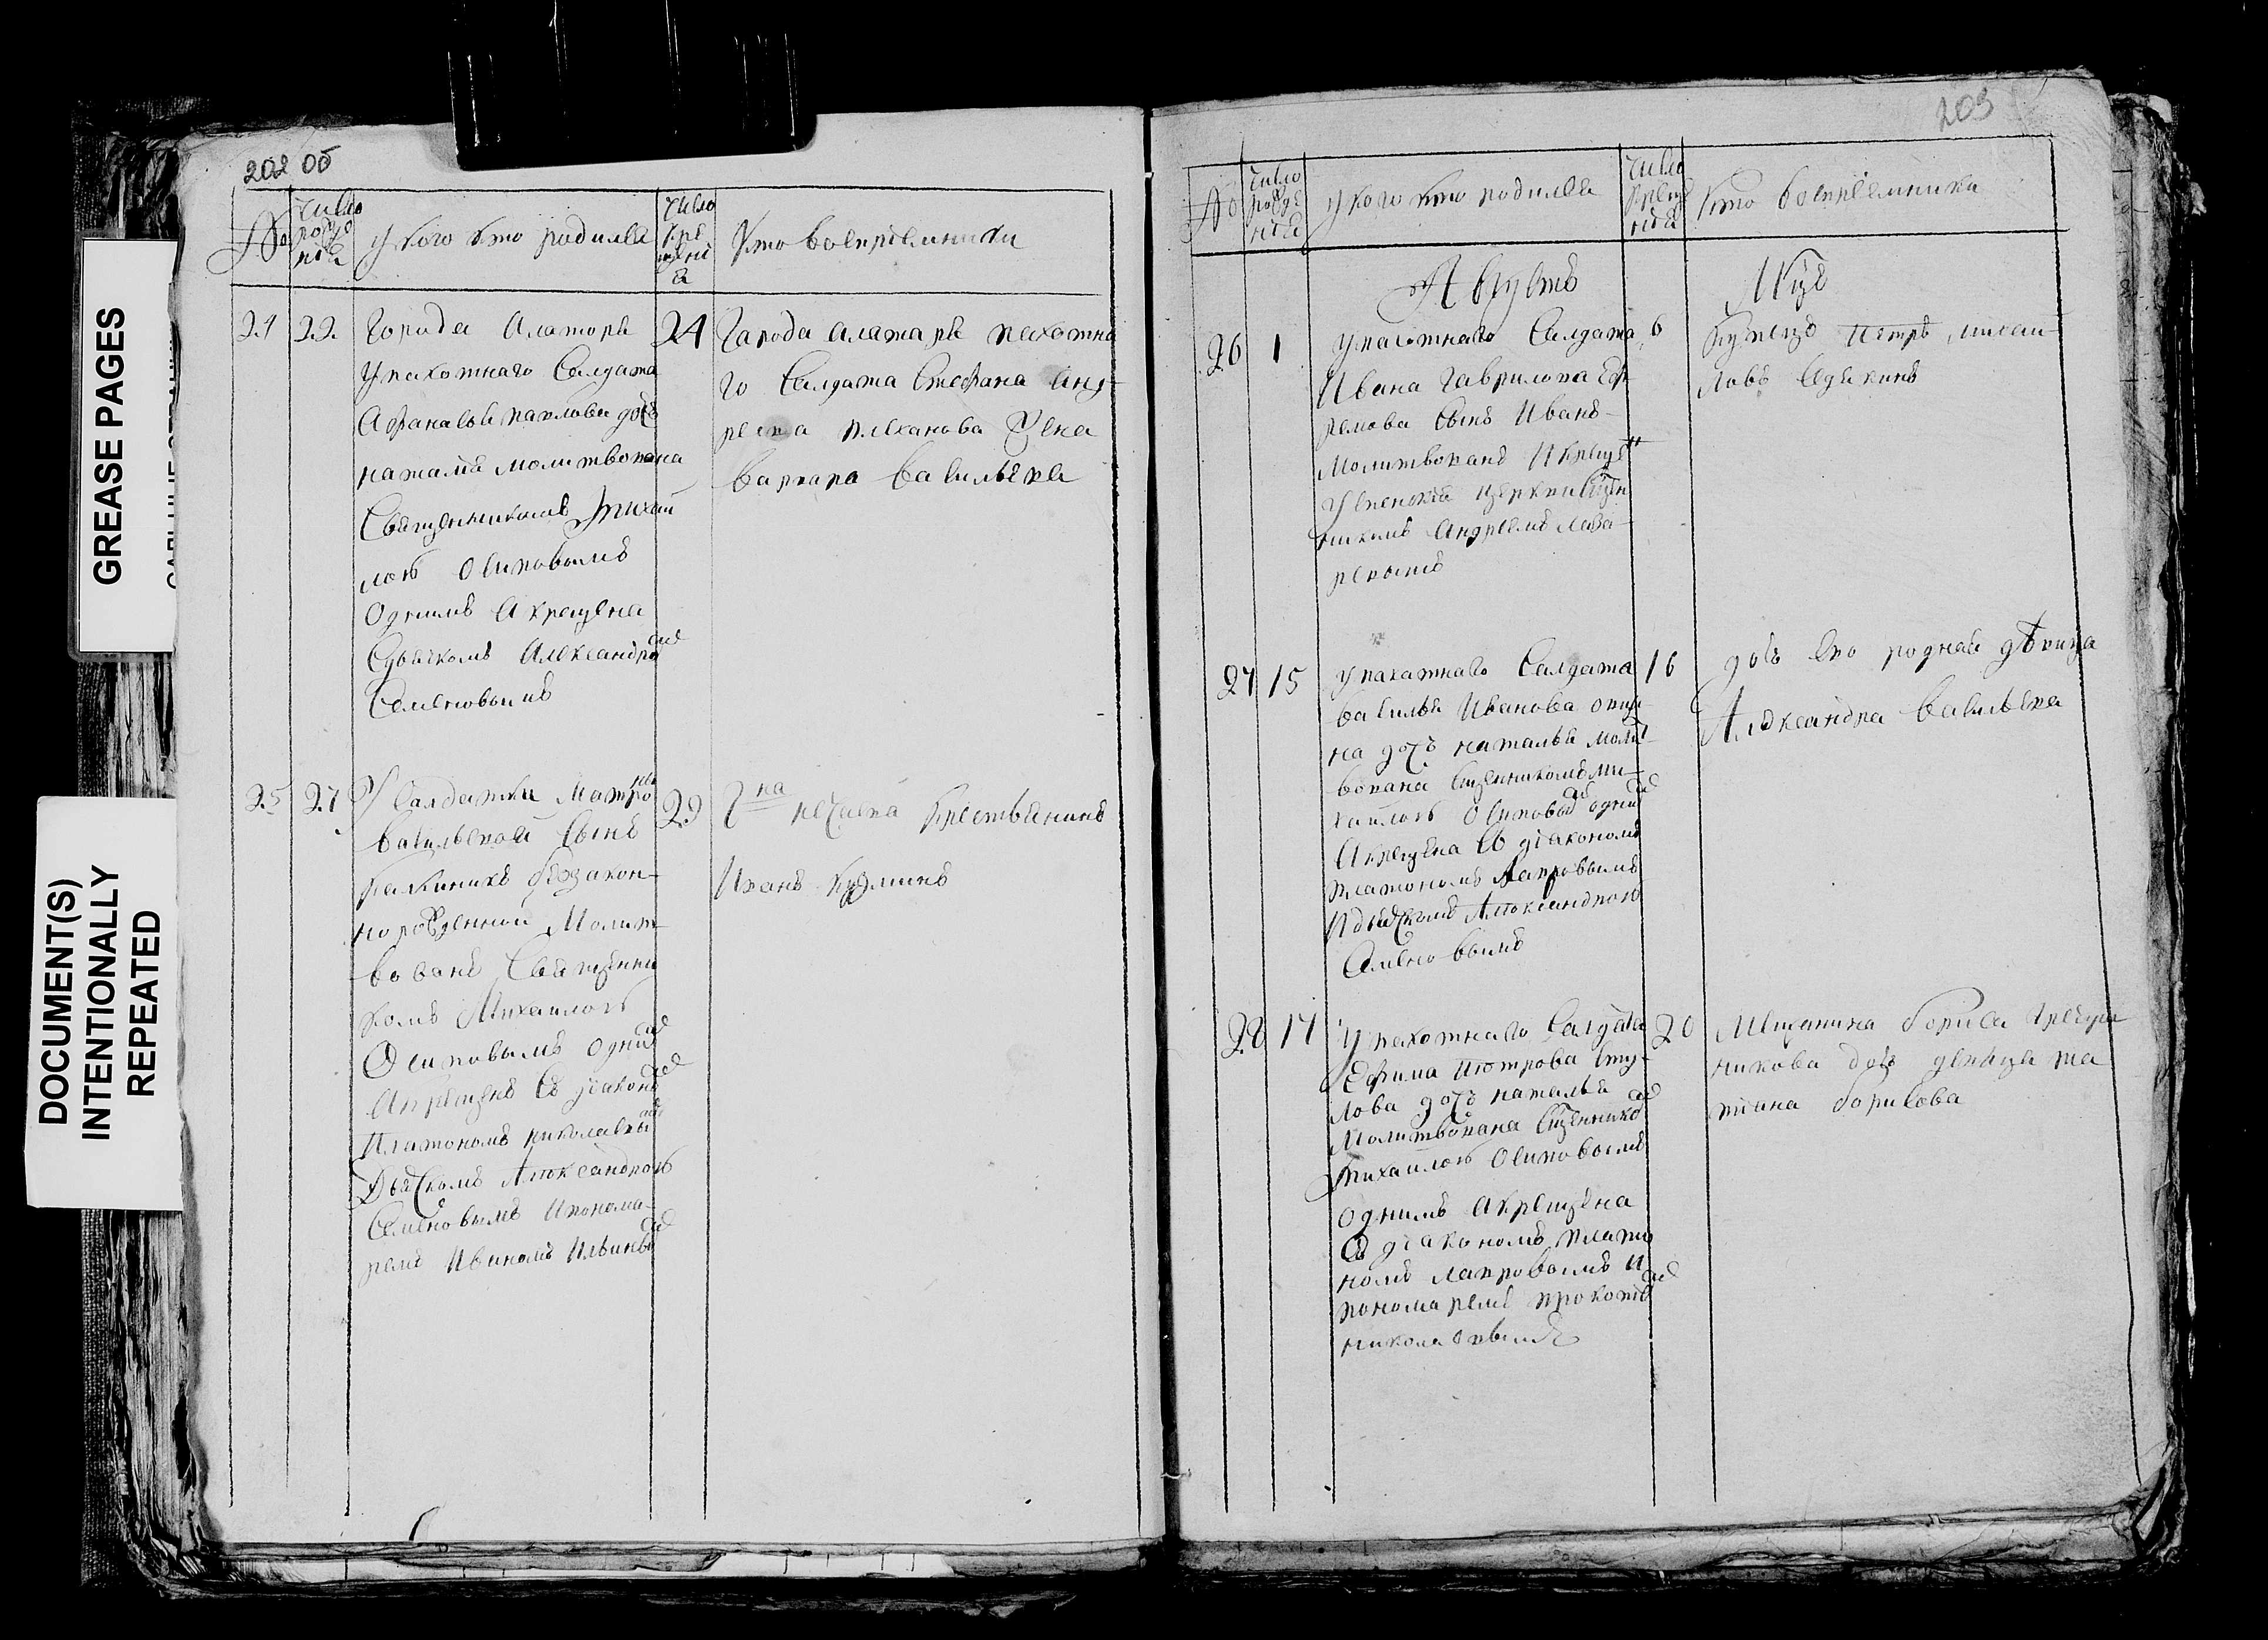 GREASE PAGES
DOCUMENT(S)
INTENTIONALLY
REPEATED
202 об
№
число
рожде
нiя
у кого кто родился
число
кре
щени
я
Кто восприемники
24
22
Города Алатыря
у пахотнаго Салдата
Афанасья Павлова дочь
наталья молитвована
Священникомъ Михаи
лою Осиповымъ
Однимъ а крещена
Александро
Семеновымъ
24
Города алатыря пахотна
го Салдата Стефана Анд
реева плеханова жена
варвара васильева
25
27
У Салдатки Матроны
васильевой Сынъ
Калиникъ беззакон-
норожденной Молит-
вованъ Священни
комъ Михаилою
Осиповымъ однимъ
а крещенъ съ дiакономъ
Платономъ
Дьячкомъ Александрою
Семеновымъ и понома-
ремъ Иваномъ
29
Гна крестьянинъ
Иванъ
203
№
число
рожде
нiя
у кого кто родился
число
креще
нiя
кто восприемники
Августъ
Мцъ
26
1
у пахотнаго Салдата
Ивана Гаврилова Еф-
ремова Сынъ Иванъ-
Молитвованъ и крещенъ
Успенской церкви Сщен
никомъ Андреемъ Лаза-
ревымъ
6
Купецъ Петръ Михаи-
ловъ
27
15
у пахатнаго Салдата
василья Иванова
на дочь наталья моли
вована Сщенникомъ ми-
хаилою Осиповымъ однимъ
а крещена съ дiакономъ
платономъ Лавровымъ
и дьячкомъ Александрою
Семеновымъ
16
дочь ево родная девица
Александра васильева
28
17
у пахотнаго Салдата
Ефима Петрова
дочь наталья
молитвована Сщенникомъ
михаилою Осиповымъ
Однимъ а крещена
съ дiакономъ плато
номъ Лавровымъ и
пономаремъ прокопiемъ
николаевымъ
20
Мещанина бориса
никова дочь девица та
тиана борисова